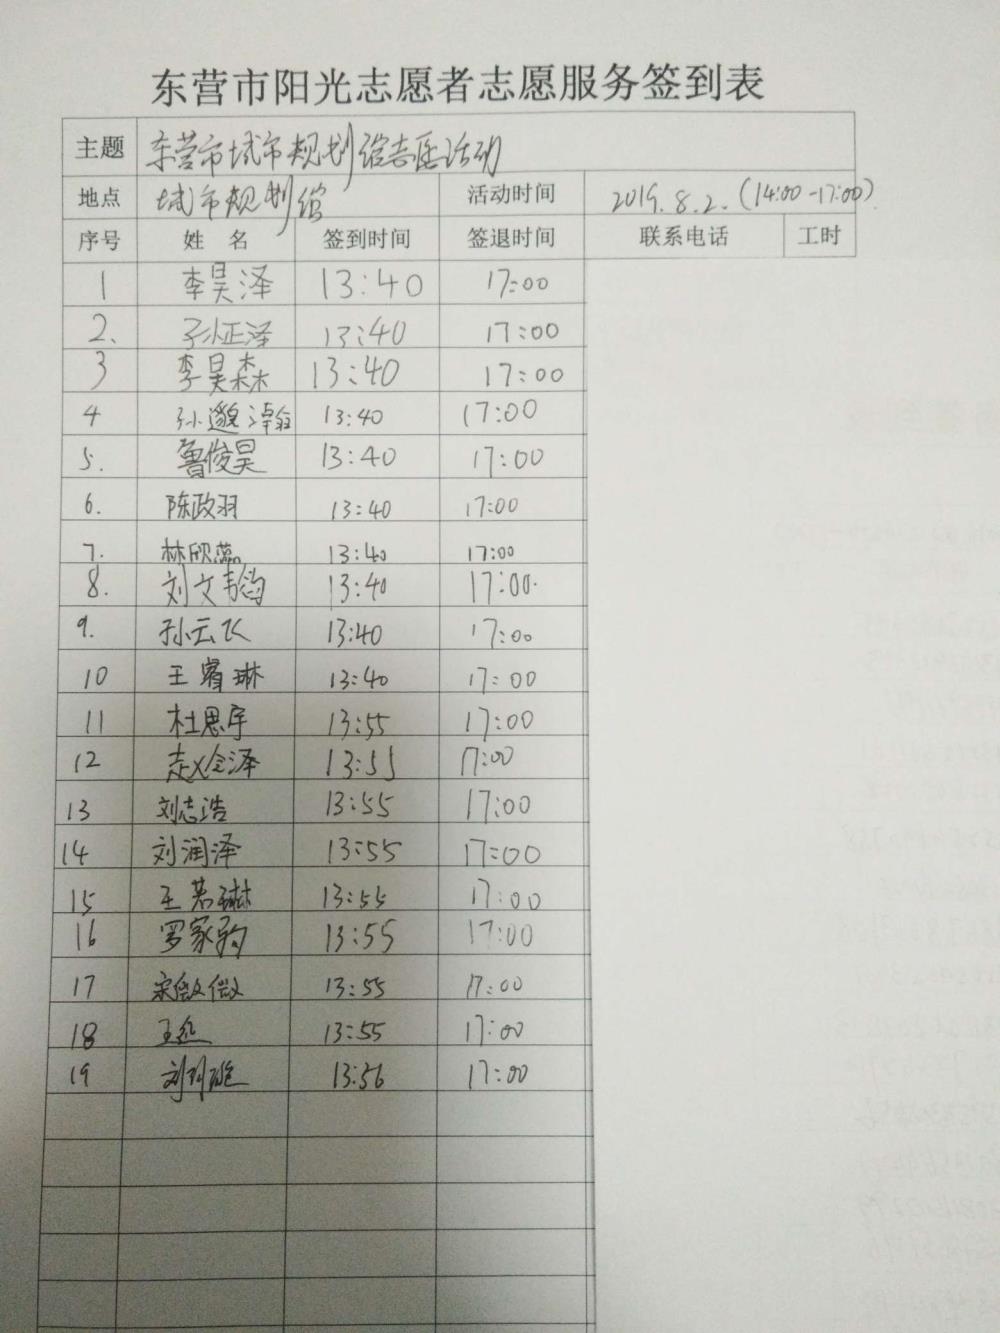 东营市阳光志愿者志愿服务签到表
主题 东营市城市规划馆志愿活动
地点 城市规划馆 活动时间 2019.8.2.(14:00-17:00)
序号 姓名 签到时间 签退时间 联系电话 工时
1 李昊泽 13:40 17:00
2. 孙正泽 13:40 17:00
3 李昊森 13:40 17:00
4 孙邈 13:40 17:00
5. 鲁俊昊 13:40 17:00
6. 陈政羽 13:40 17:00
7. 林欣蕊 13:40 17:00
8. 刘文韩 13:40 17:00.
9. 孙云飞 13:40 17:00
10 王睿琳 13:40 17:00
11 杜思宇 13:55 17:00
12 赵金泽 13:55 17:00
13 刘志浩 13:55 17:00
14 刘润泽 13:55 17:00
15 王若琳 13:55 17:00
16 罗家驹 13:55 17:00
17 宋微微 13:55 17:00
18 王 13:55 17:00
19 刘 13:56 17:00